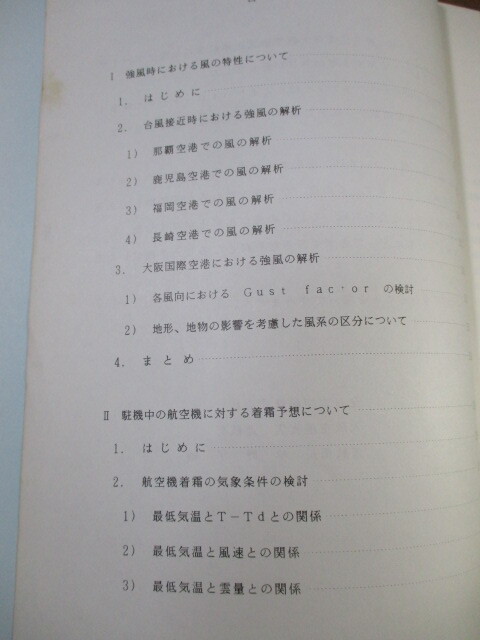 Ⅰ 強風時における風の特性について
1. はじめに
2. 台風接近時における強風の解析
1) 那覇空港での風の解析
2) 鹿児島空港での風の解析
3) 福岡空港での風の解析
4) 長崎空港での風の解析
3. 大阪国際空港における強風の解析
1) 各風向における Gust factor の検討
2) 地形、地物の影響を考慮した風系の区分について
4. まとめ
Ⅱ 駐機中の航空機に対する着霜予想について
1. はじめに
2. 航空機着霜の気象条件の検討
1) 最低気温とT-Tdとの関係
2) 最低気温と風速との関係
3) 最低気温と雲量との関係